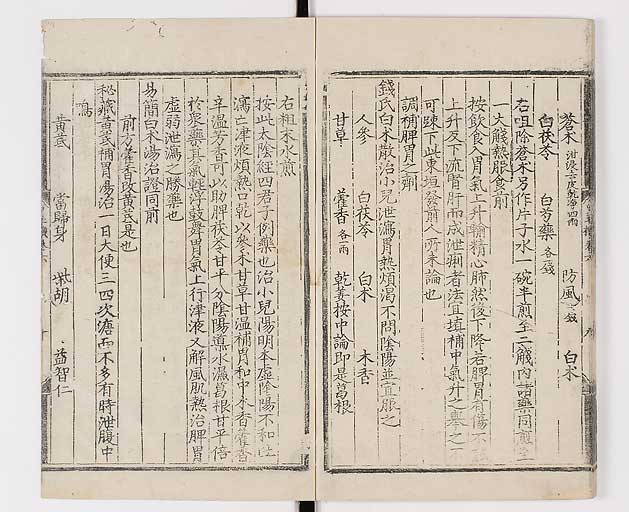 蒼木 泔浸去皮乾淨四兩 防風 二錢 白朮
白茯苓 白芍藥 各一錢
右㕮除蒼朮另作片子水一碗半煎至二盞內諸藥同煎至
一大盞熱服食前
按飲食入胃氣上升輸精心肺然後下降若脾胃有傷不
上升反下流腎肝而成泄痢者法宜塡補中氣升之擧之
可踈下此東垣發前人所未論也
調補脾胃之劑
錢氏白朮散治小兒泄瀉胃熱煩渴不問陰陽並宜服之
人參 白茯苓 白朮 木香
甘草 藿香 各一兩 乾姜按中論即是葛根
右粗末水煎
按此太陰經四君子例藥也治小兒陽明夲虛陰陽不和吐
瀉亡津液煩熱口乾以參朮甘草甘溫補胃和中木香藿香
辛溫芳香可以助脾茯苓甘平分陰陽導水濕葛根甘平倍
於衆藥其氣輕浮鼓舞胃氣上行津液又解風肌熱治脾胃
虛弱泄瀉之勝藥也
易簡白朮湯治證同前
前方藿香改黃芪是也
秘藏黃芪補胃湯治一日大便三四次溏而不多有時泄腹中
鳴
黃芪 當歸身 柴胡 益智仁